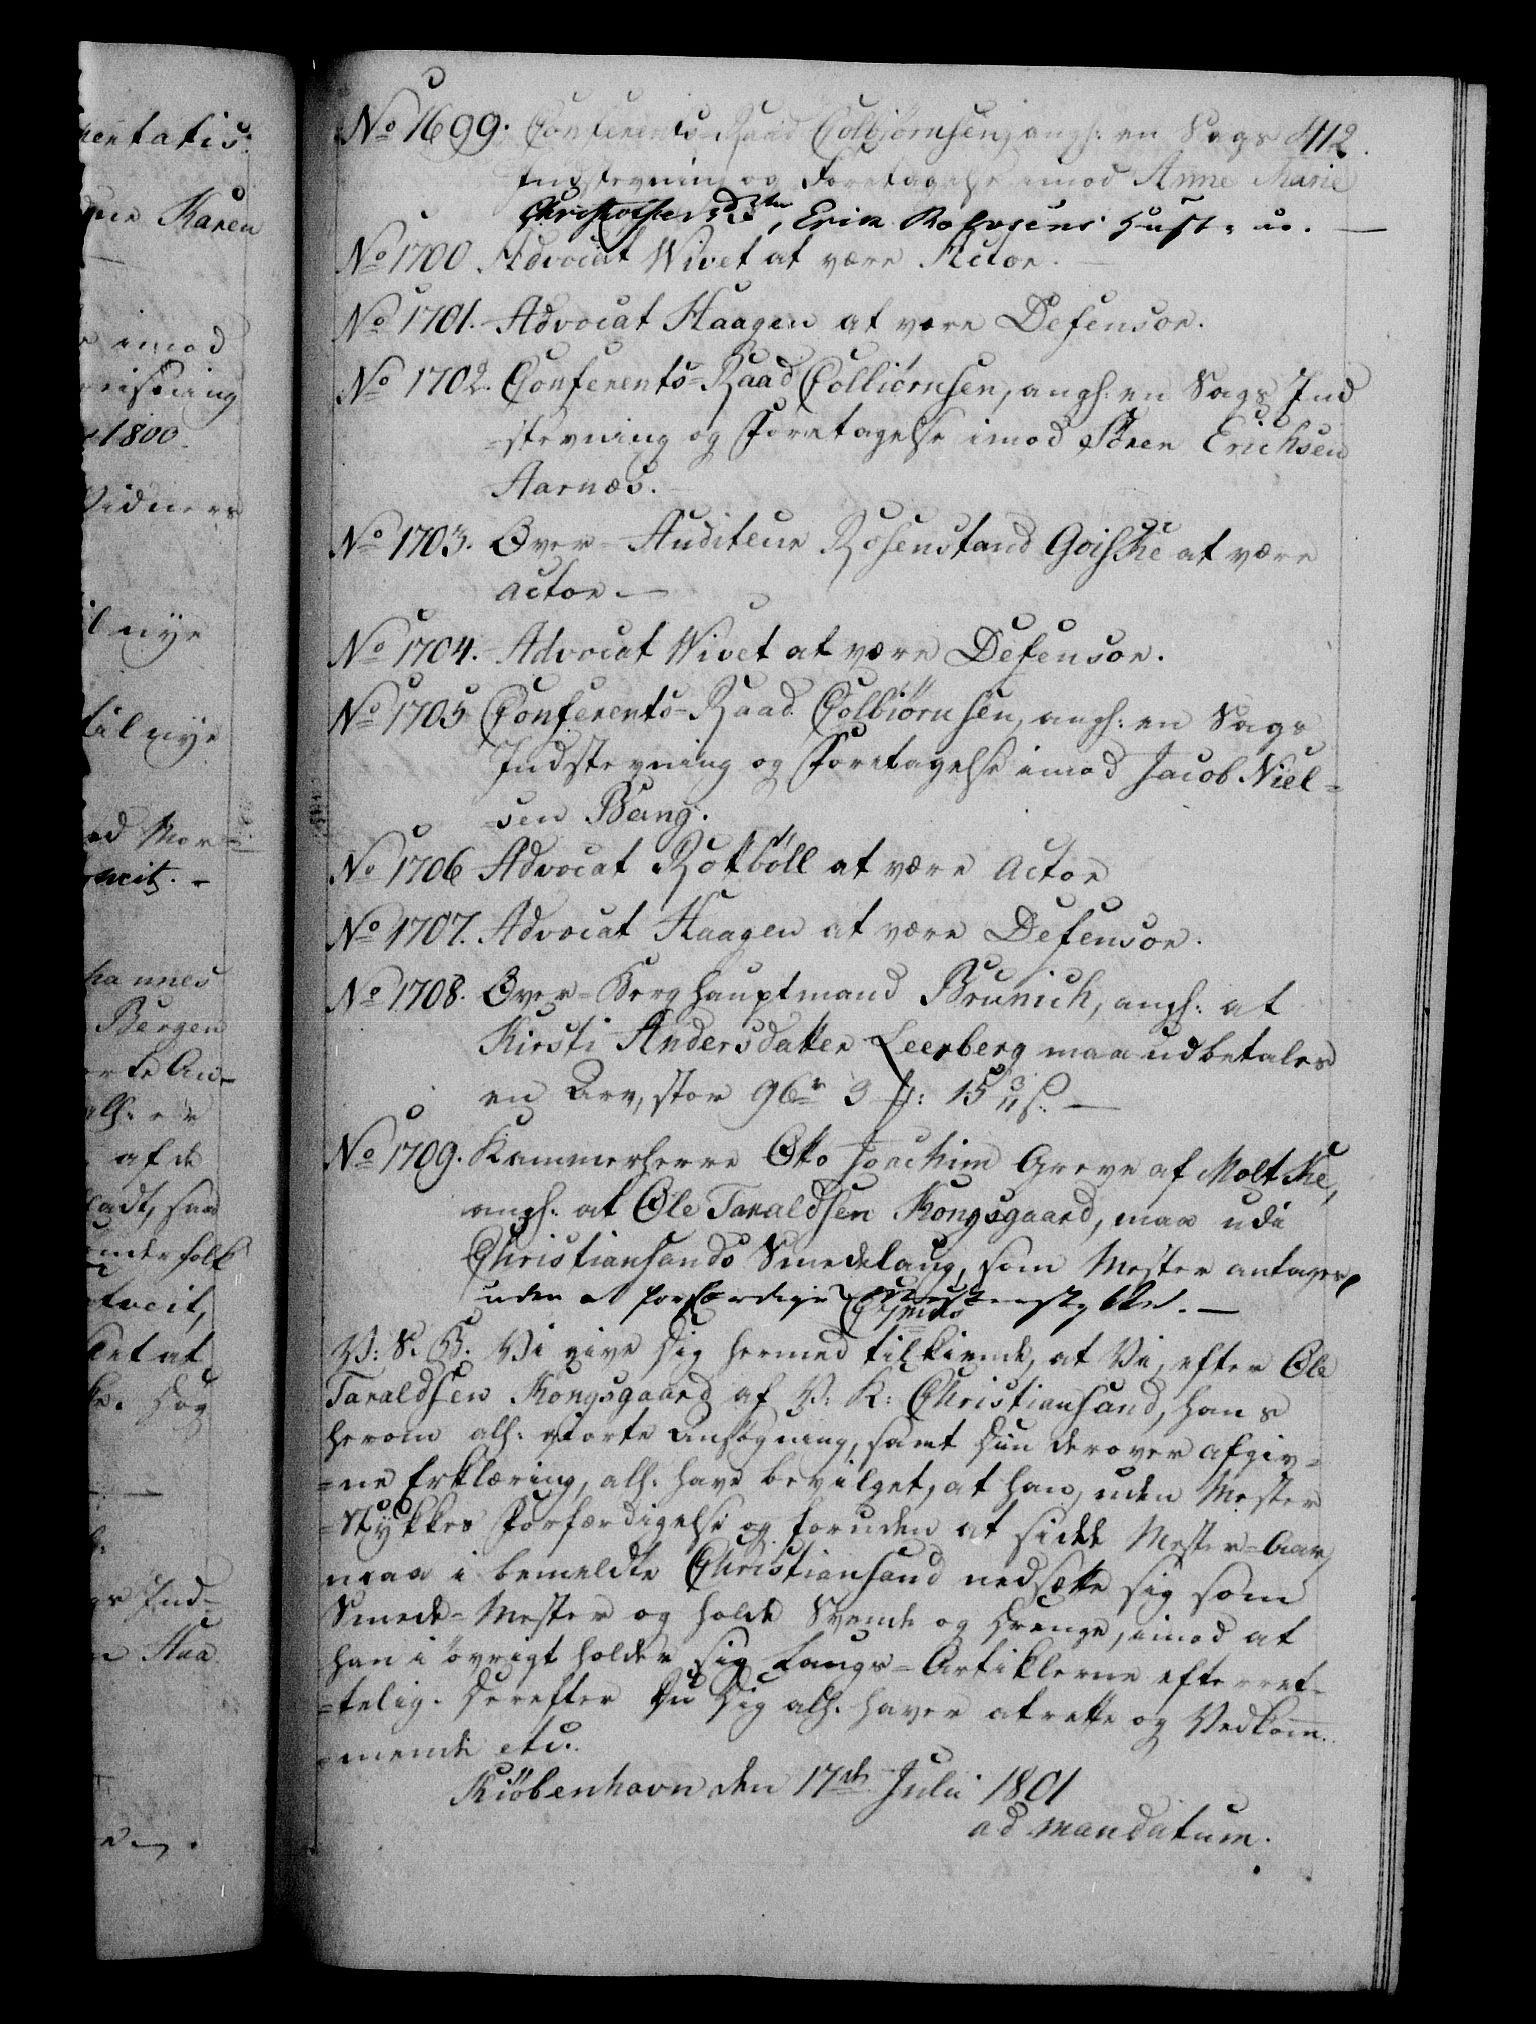 412.
No 1699. Conferents-Raad Colbiørnsen, angh: en Sags
Indstevning og Foretagelse imod Anne Marie
Christophersdtr, Erik Hustrue. —
No 1700. Advocat Wivet at være Actor. —
No 1701. Advocat Haagen at være Defensor.
No 1702. Conferents-Raad Colbiörnsen, angh: en Sags Ind
=stevning og Foretagelse imod Sören Erichsen
Aarnæs.
No 1703. Over-Auditeur Rosenstand Goiske at være
Actor. —
No 1704. Advocat Wivet at være Defensor.
No 1705 Conferents-Raad Colbiörnsen, angh: en Sags
Indstevning og Foretagelse imod Jacob Niel=
=sen Bang.
No 1706 Advocat Rotböll at være Actor
No 1707. Advocat Haagen at være Defensor.
No 1708. Over-Berghauptmand Brünich, angh: at
Kirsti Andersdatter Leerberg maa udbetales
en Arv, stor 96 r 3 15
No 1709. Kammerherre Otto Joachim Greve af Moltke,
angh: at Ole Taraldsen Kongsgaard, maa udi
Christiansands Smedelaug, som Mester antages,
uden at forfærdige Mesterstykke. —
V: S. G. Vi give Dig hermed tilkiende, at Vi, efter Ole
Taraldsen Kongsgaard af V: K: Christiansand, hans
herom alh: giorte Ansøgning, samt Din derover afgiv=
=ne Erklæring, alh: have bevilget, at han, uden Mester
=Stykkes Forfærdigelse og foruden at sidde Mester-Aar,
maa i bemeldte Christiansand nedsætte sig som
Smede-Mester og holde Svende og Drenge, imod at
han i övrigt holder sig Laugs-Artiklerne efterret=
=telig. Derefter Du Dig alh. haver at rette og Vedkom=
=mende etc.
Kiöbenhavn den 17de Julii 1801
ad mandatum.